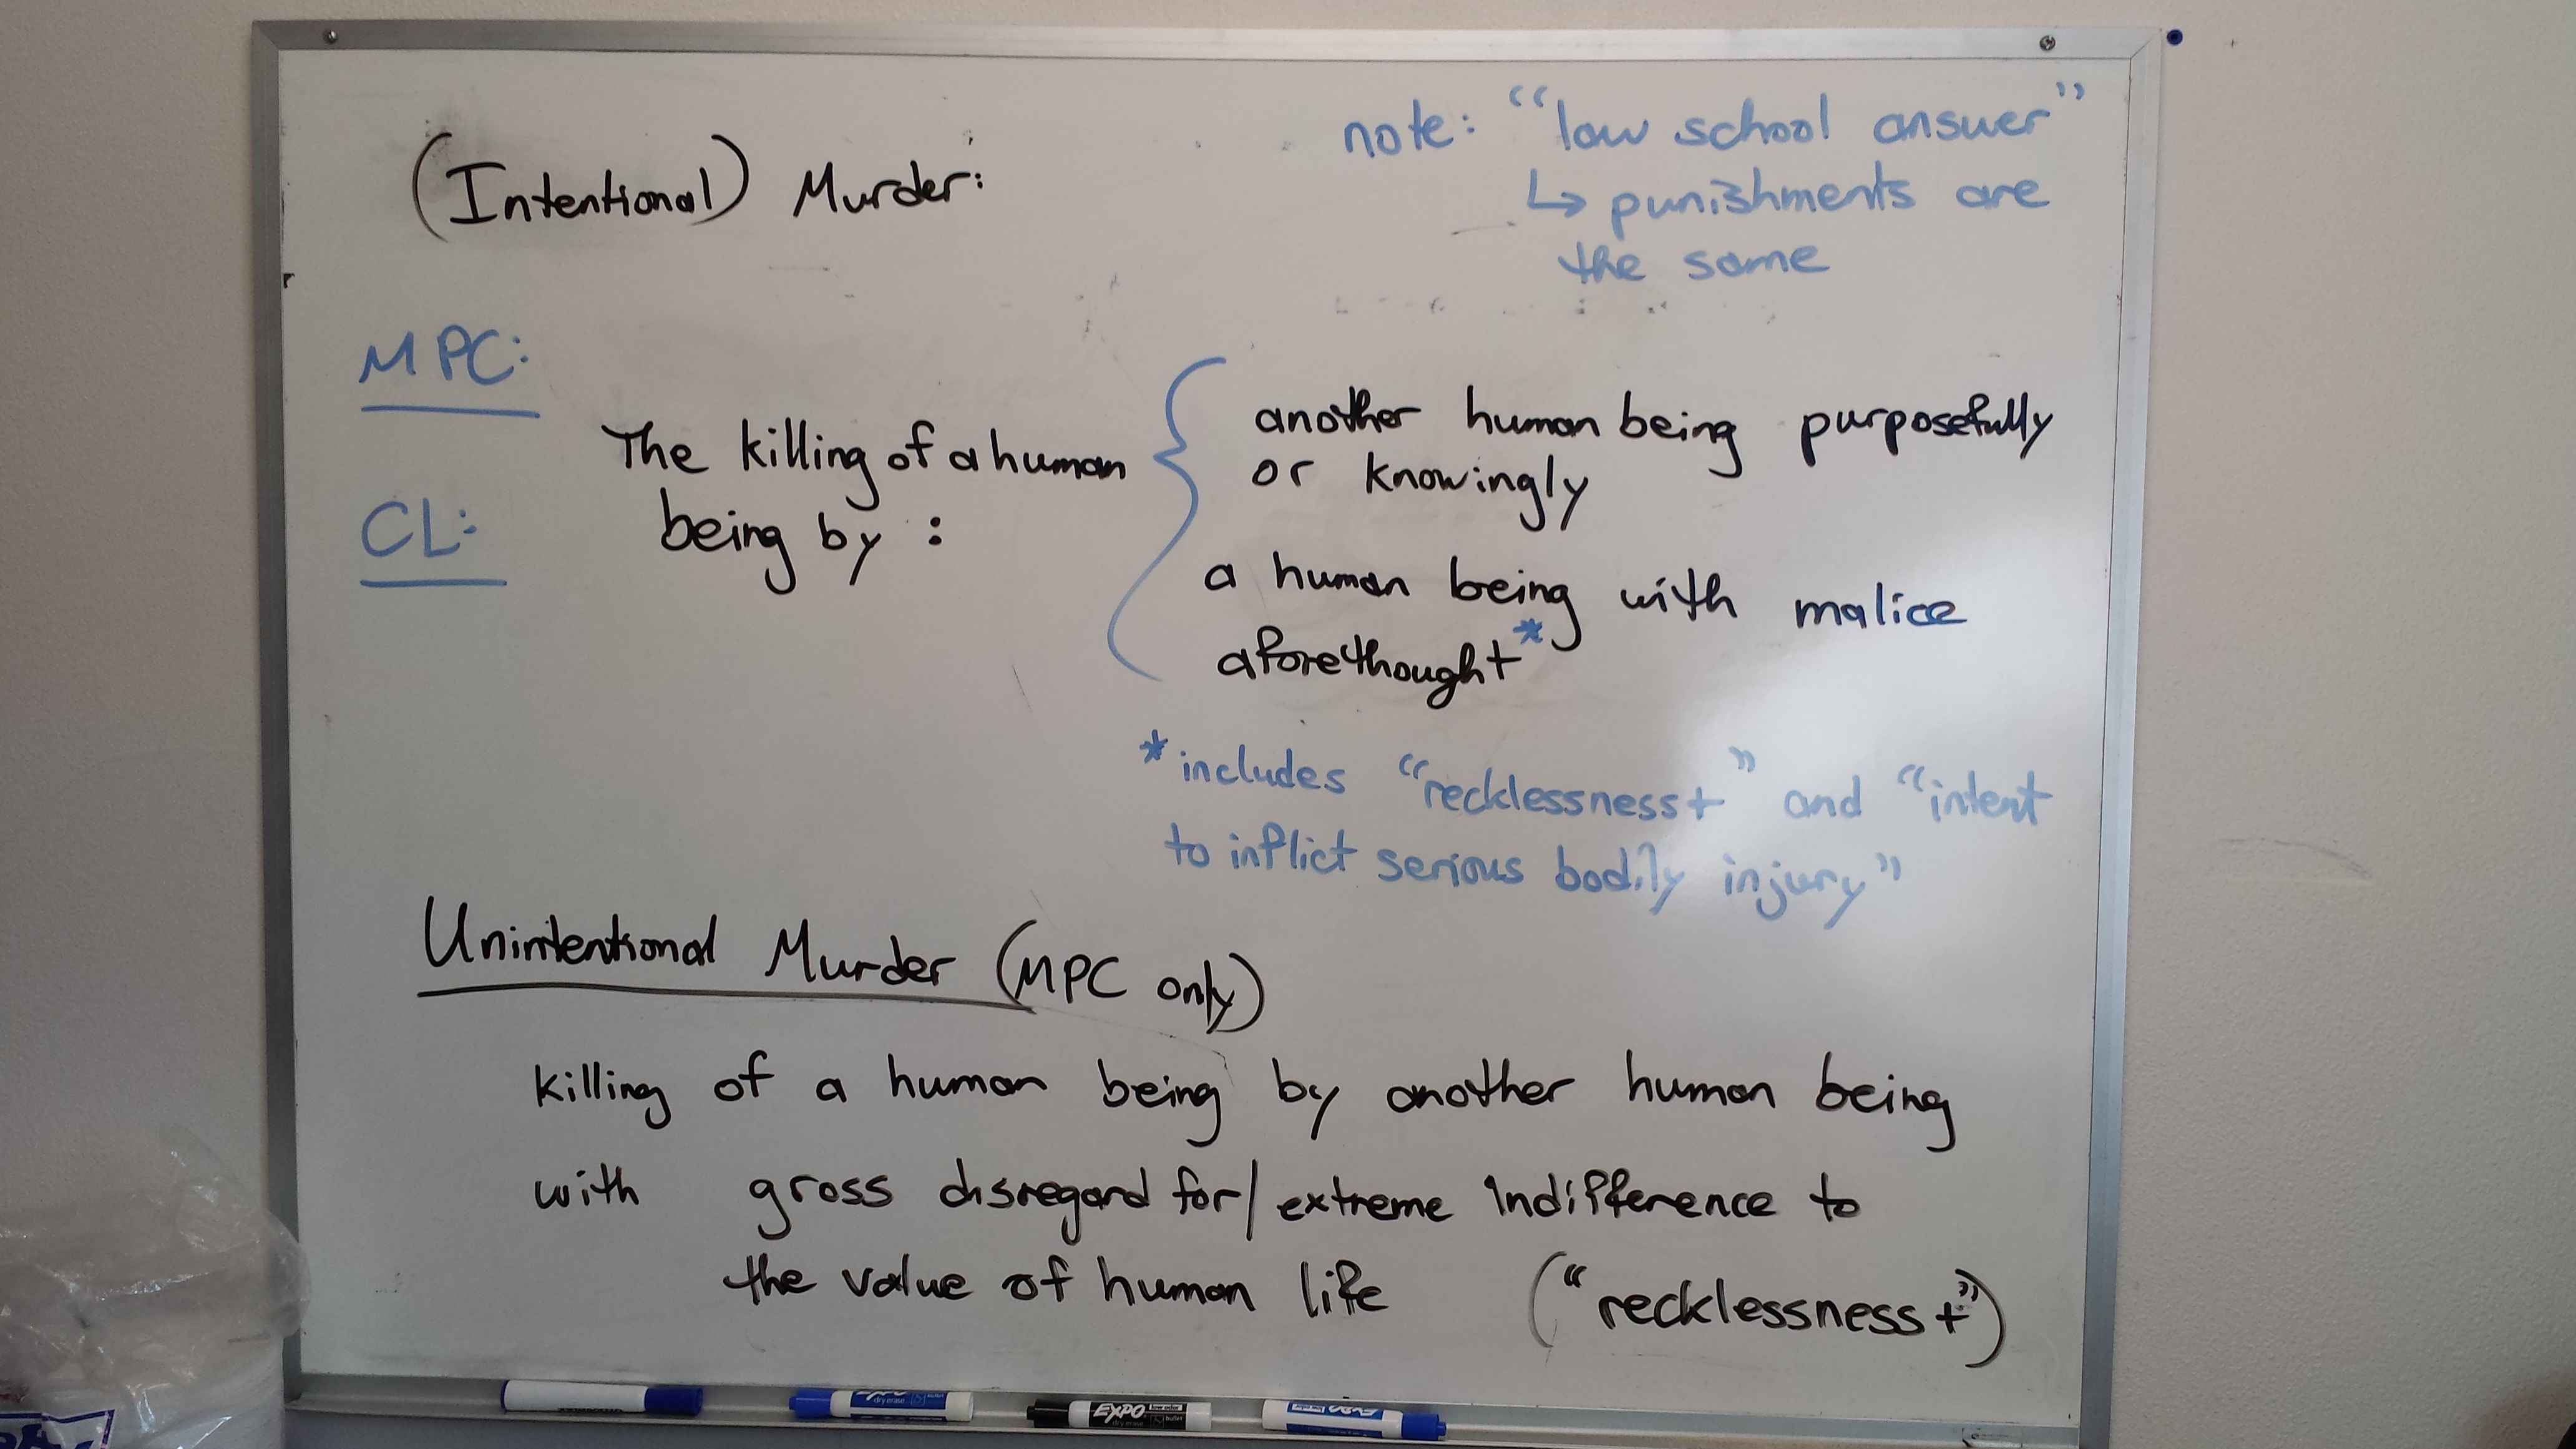 (Intentional) Murder:
note: "law school answer"
↳ punishments are
the same
MPC:
CL:
The killing of a human
being by :
another human being purposefully
or knowingly
a human being with malice
aforethought*
*includes "recklessness+" and "intent
to inflict serious bodily injury"
Unintentional Murder (MPC only)
killing of a human being by another human being
with gross disregard for/extreme indifference to
the value of human life ("recklessness+")
EXPO
dry erase
bullet